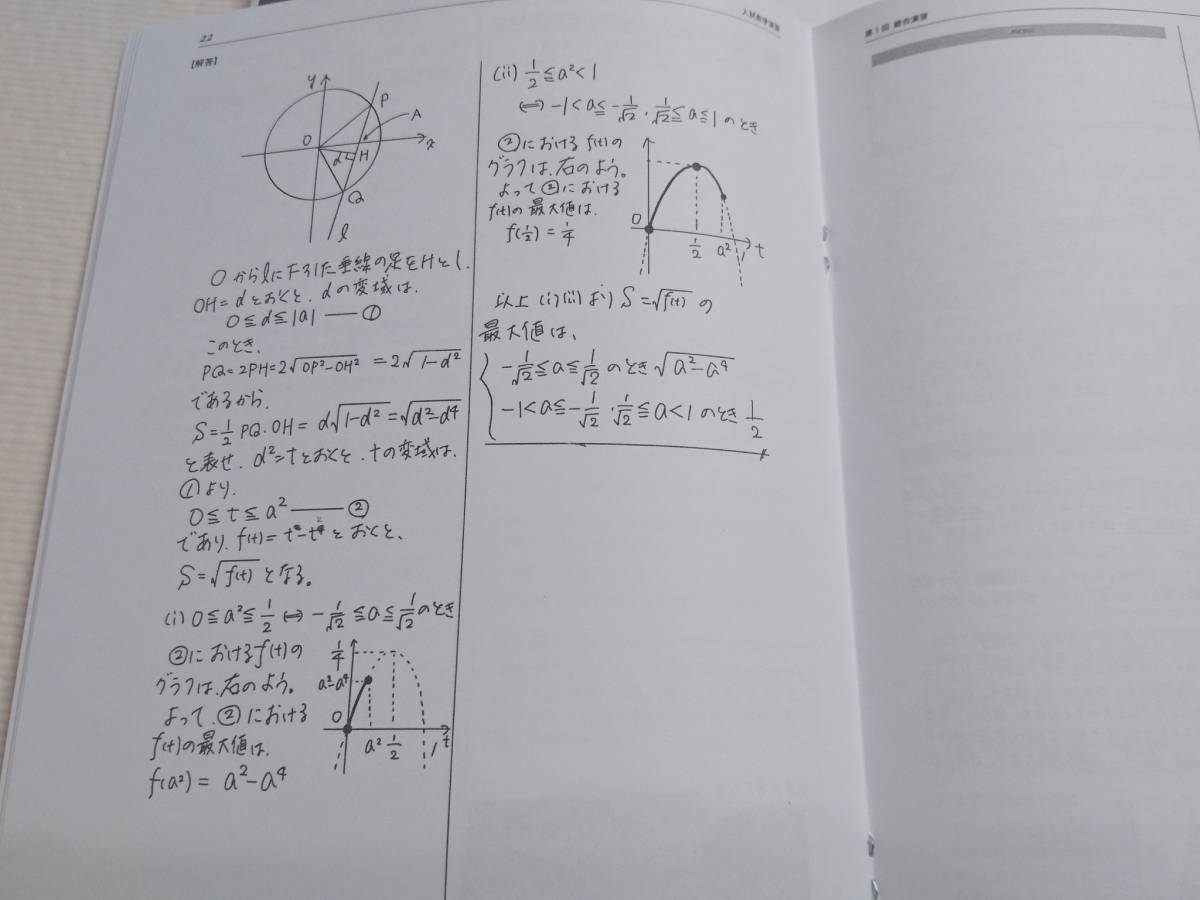 22
入試数学演習
【解答】
y
P
A
O
x
d
H
Q
l
Oからlに下ろした垂線の足をHとし.
OH=dとおくと、dの変域は、
0≦d≦|a| ― ①
このとき、
PQ=2PH=2√(OP²-OH²) =2√(1-d²)
であるから.
S=1/2 PQ・OH= d√(1-d²)=√(d²-d⁴)
と表せ、d²=tとおくと、tの変域は、
①より、
0≦t≦a² ― ②
であり、f(t)= t-t²とおくと、
S=√f(t) となる。
(i) 0≦a²≦1/2 ⇔ -1/√2≦a≦1/√2のとき
②におけるf(t)の
グラフは、右のよう。
よって、②における
f(t)の最大値は、
f(a²)= a²-a⁴
1/4
a²-a⁴
O
a²
1/2
1
t
(ii) 1/2≦a²<1
⇔ -1<a≦-1/√2, 1/√2≦a≦1のとき
②におけるf(t)の
グラフは、右のよう。
よって②における
f(t)の最大値は、
f(1/2)=1/4
O
1/2
a²
1
t
以上(i)(ii)より S=√f(t) の
最大値は、
-1/√2≦a≦1/√2 のとき √(a²-a⁴)
-1<a≦-1/√2, 1/√2≦a<1のとき 1/2
第1回 総合演習
MEMO